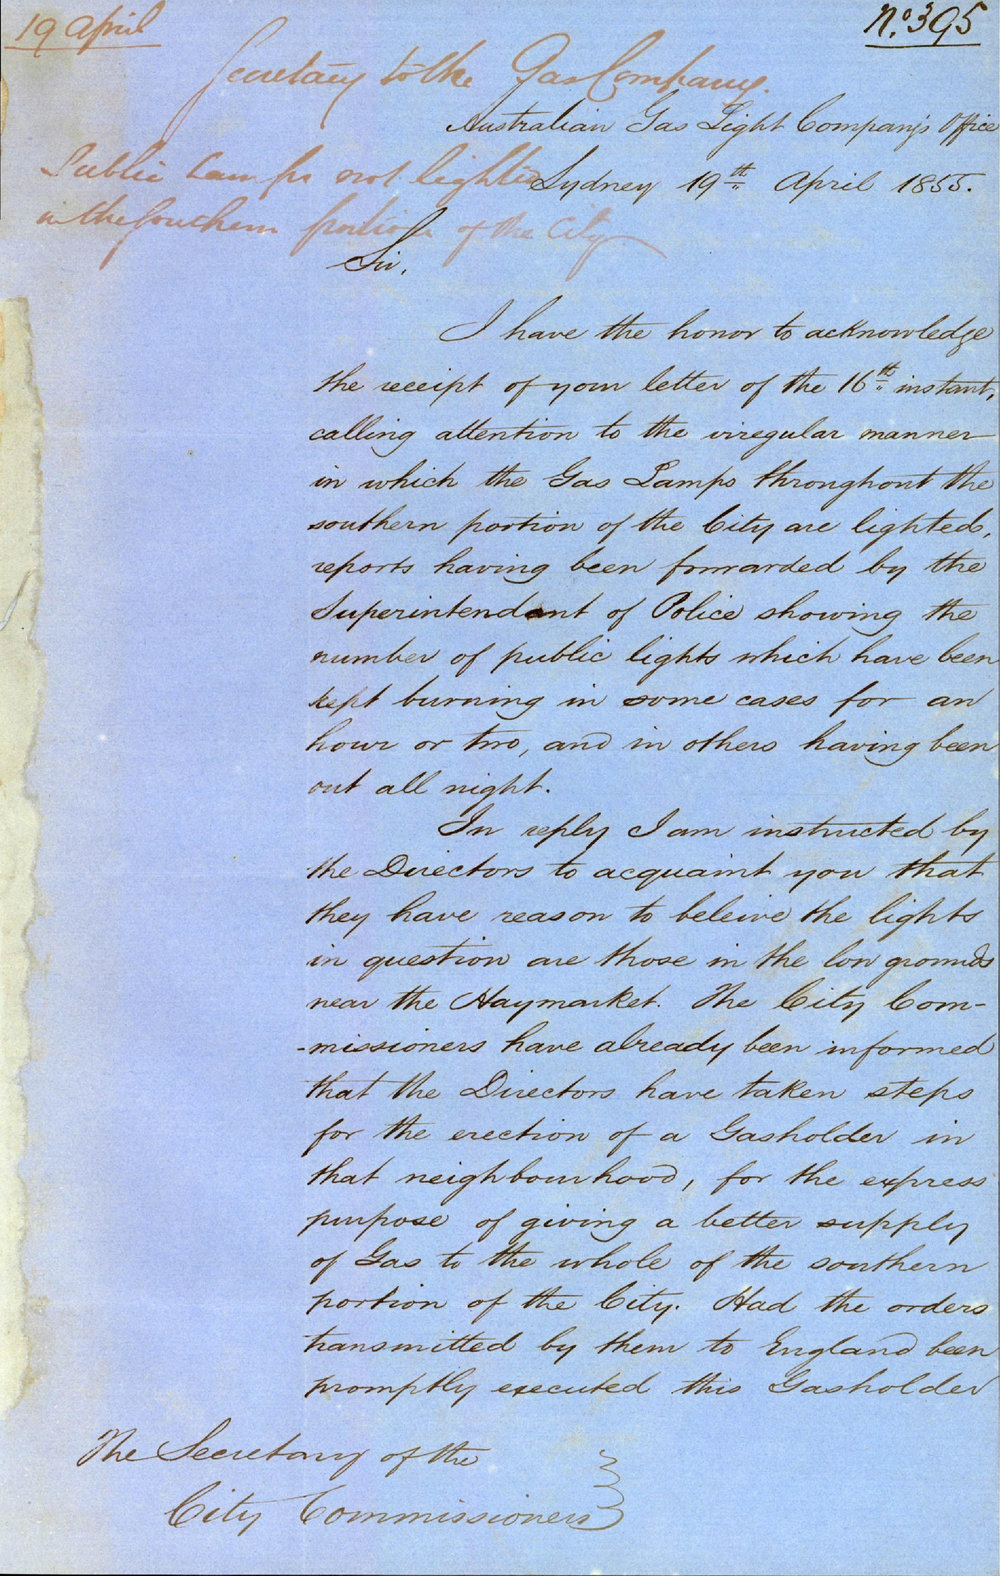 19 April
No. 395
Secretary to the Gas Company.
Australian Gas Light Company's Office
Public Lamps not lighted
Sydney 19th April 1855.
in the southern portion of the City
Sir,
I have the honor to acknowledge
the receipt of your letter of the 16th instant,
calling attention to the irregular manner
in which the Gas Lamps throughout the
southern portion of the City are lighted,
reports having been forwarded by the
Superintendent of Police showing the
number of public lights which have been
kept burning in some cases for an
hour or two, and in others having been
out all night.
In reply I am instructed by
the Directors to acquaint you that
they have reason to beleive the lights
in question are those in the low grounds
near the Haymarket. The City Com-
-missioners have already been informed
that the Directors have taken steps
for the erection of a Gasholder in
that neighbourhood, for the express
purpose of giving a better supply
of Gas to the whole of the southern
portion of the City. Had the orders
transmitted by them to England been
promptly executed this Gasholder
The Secretary of the
City Commissioners